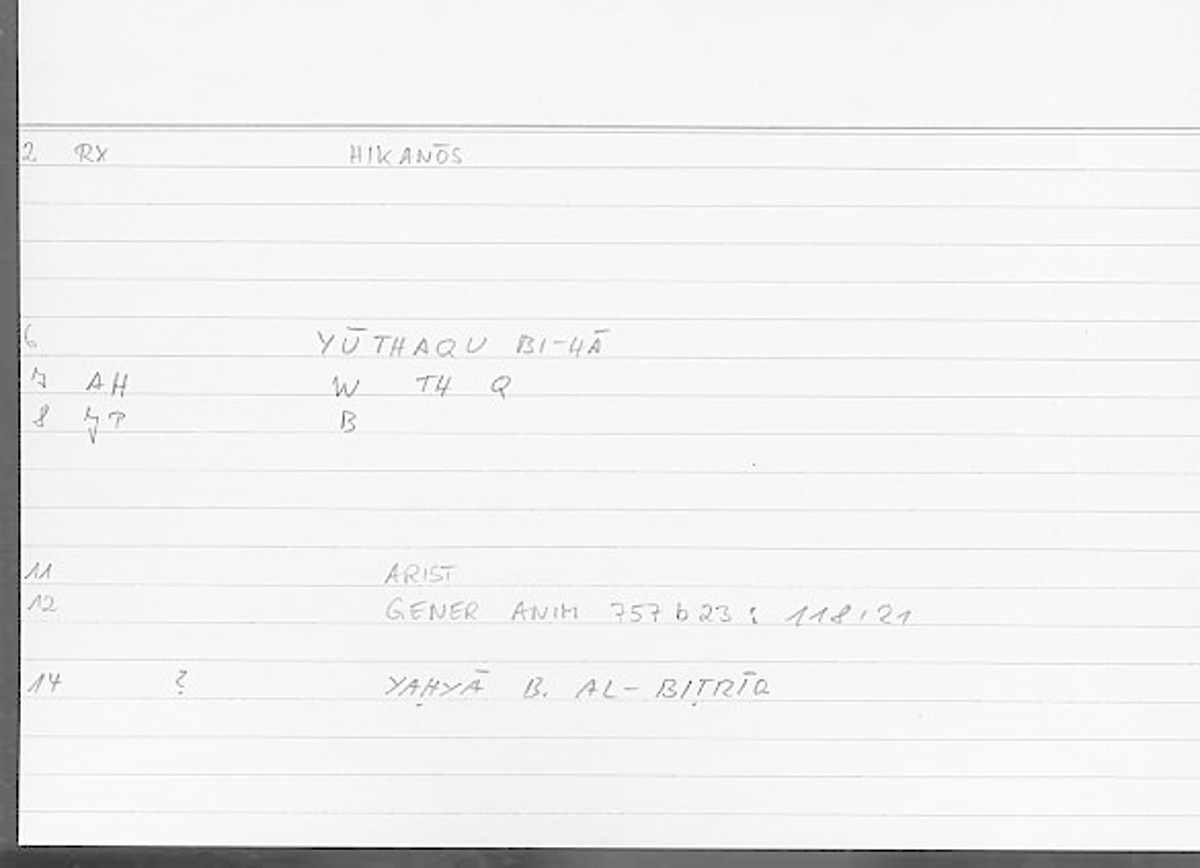 2 RX HIKANŌS
6 YŪTHAQU BI-HĀ
7 AH W TH Q
8 JP B
11 ARIST
12 GENER ANIM 757b23 ; 118,21
14 ? YAḤYĀ B. AL-BIṬRĪQ